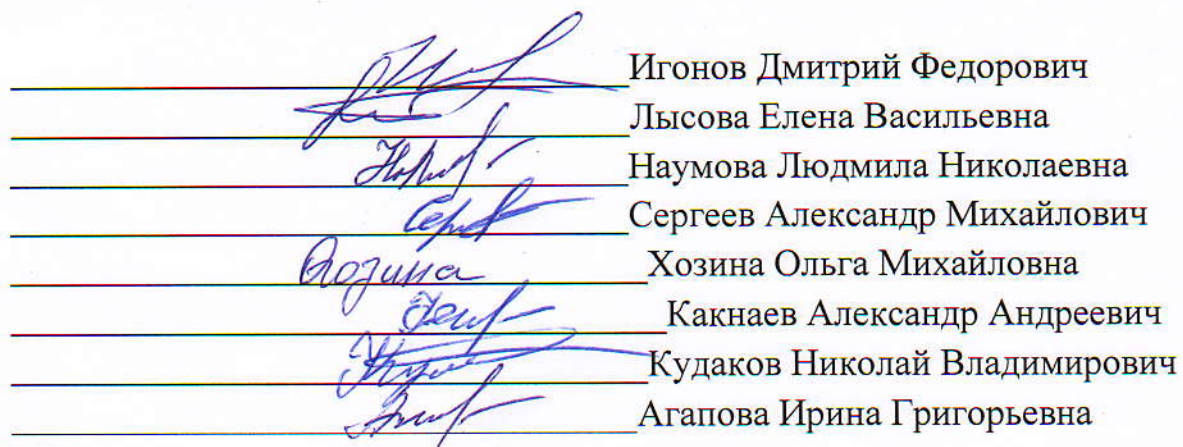 Игонов Дмитрий Федорович
Лысова Елена Васильевна
Наумова Людмила Николаевна
Сергеев Александр Михайлович
Хозина Хозина Ольга Михайловна
Какнаев Александр Андреевич
Кудаков Николай Владимирович
Агапова Ирина Григорьевна